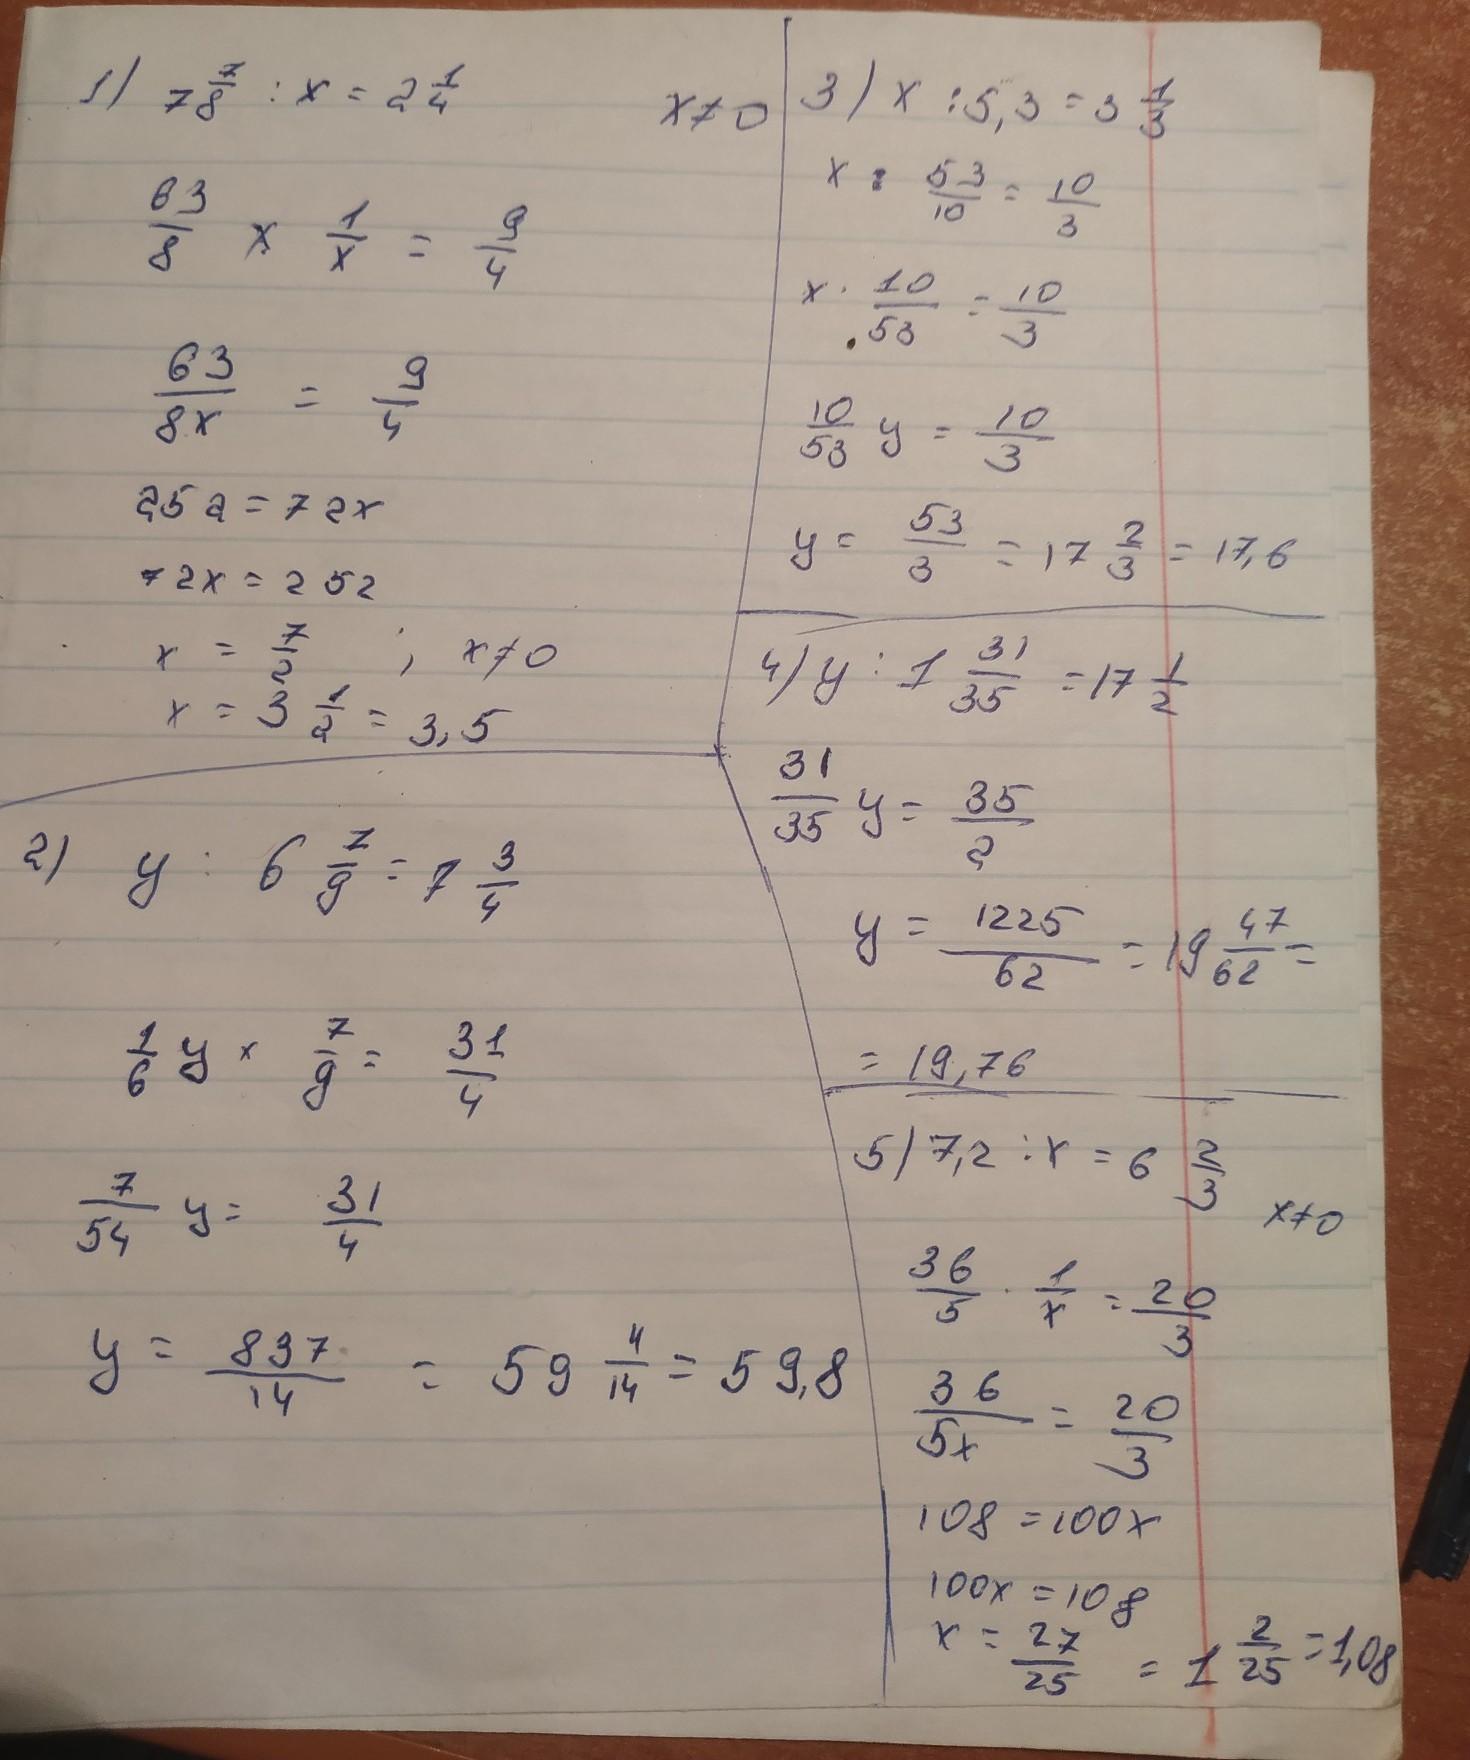 1) 7 7/8 : x = 2 1/4
x≠0
63/8 × 1/x = 9/4
63/8x = 9/4
252 = 72x
72x = 252
x = 7/2 ; x≠0
x = 3 1/2 = 3,5
2) y : 6 7/9 = 7 3/4
1/6 y × 7/9 = 31/4
7/54 y = 31/4
y = 837/14 = 59 4/14 = 59,8
3) x : 5,3 = 3 1/3
x : 53/10 = 10/3
x · 10/53 = 10/3
10/53 y = 10/3
y = 53/3 = 17 2/3 = 17,6
4) y : 1 31/35 = 17 1/2
31/35 y = 35/2
y = 1225/62 = 19 47/62 =
= 19,76
5) 7,2 : x = 6 2/3
x≠0
36/5 · 1/x = 20/3
36/5x = 20/3
108 = 100x
100x = 108
x = 27/25 = 1 2/25 = 1,08